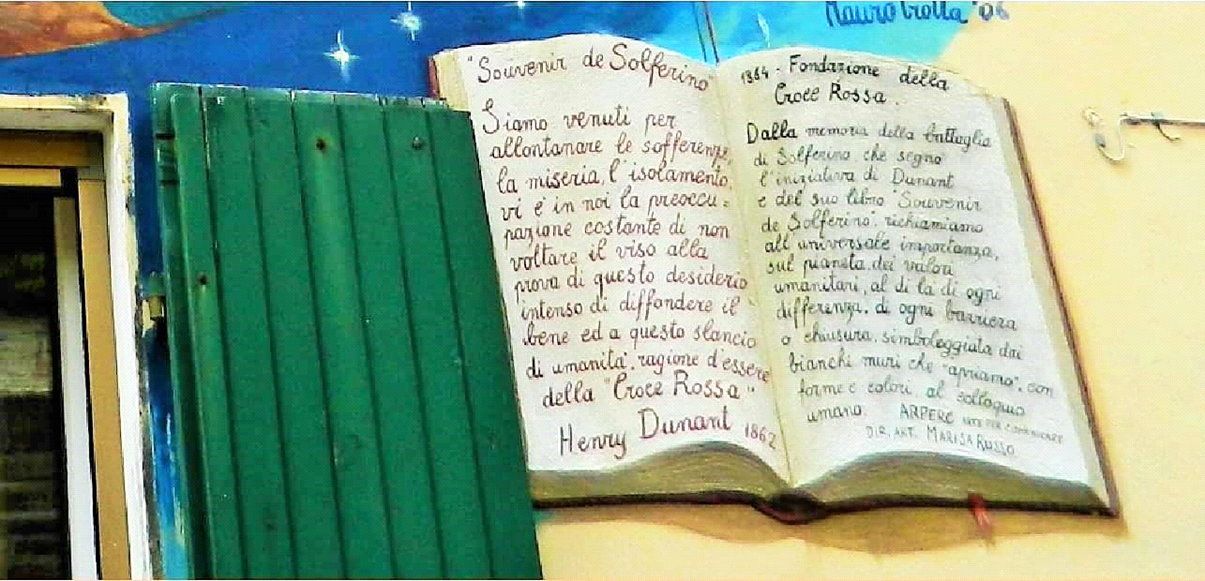 Mauro Trotta '06
"Souvenir de Solferino"
Siamo venuti per
allontanare le sofferenze,
la miseria, l'isolamento,
vi e' in noi la preoccu=
pazione costante di non
voltare il viso alla
prova di questo desiderio
intenso di diffondere il
bene ed a questo slancio
di umanita', ragione d'essere
della "Croce Rossa"
Henry Dunant 1862
1864 - Fondazione della
Croce Rossa.
Dalla memoria della battaglia
di Solferino che segno
l'iniziativa di Dunant
e del suo libro "Souvenir
de Solferino", richiamiamo
all'universale importanza,
sul pianeta, dei valori
umanitari, al di la di ogni
differenza, di ogni barriera
o chiusura, simboleggiata dai
bianchi muri che "apriamo", con
forme e colori, al colloquio
umano. ARPERC ARTE PER COMUNICARE
DIR. ART. MARISA RUSSO